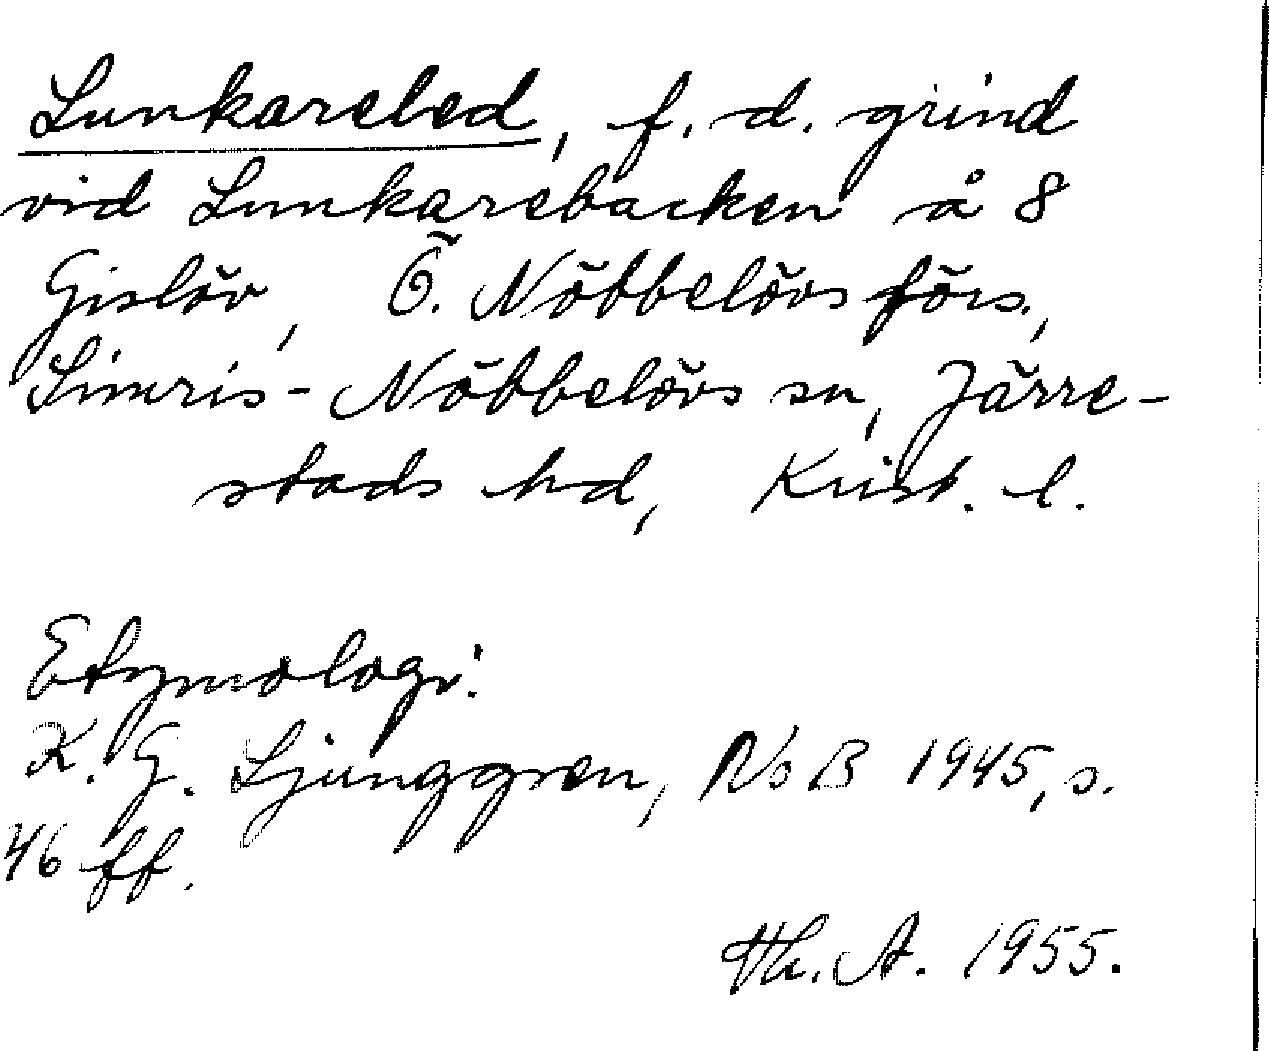 Lunkareled, f. d. grind
vid Lunkarebacken å 8
Gislöv, Ö. Nöbbelövs förs.,
Simris-Nöbbelövs sn, Järre-
stads hd, Krist. l.
Etymologi:
K. G. Ljunggren, NoB 1945, s.
46 ff.
Th. A. 1955.